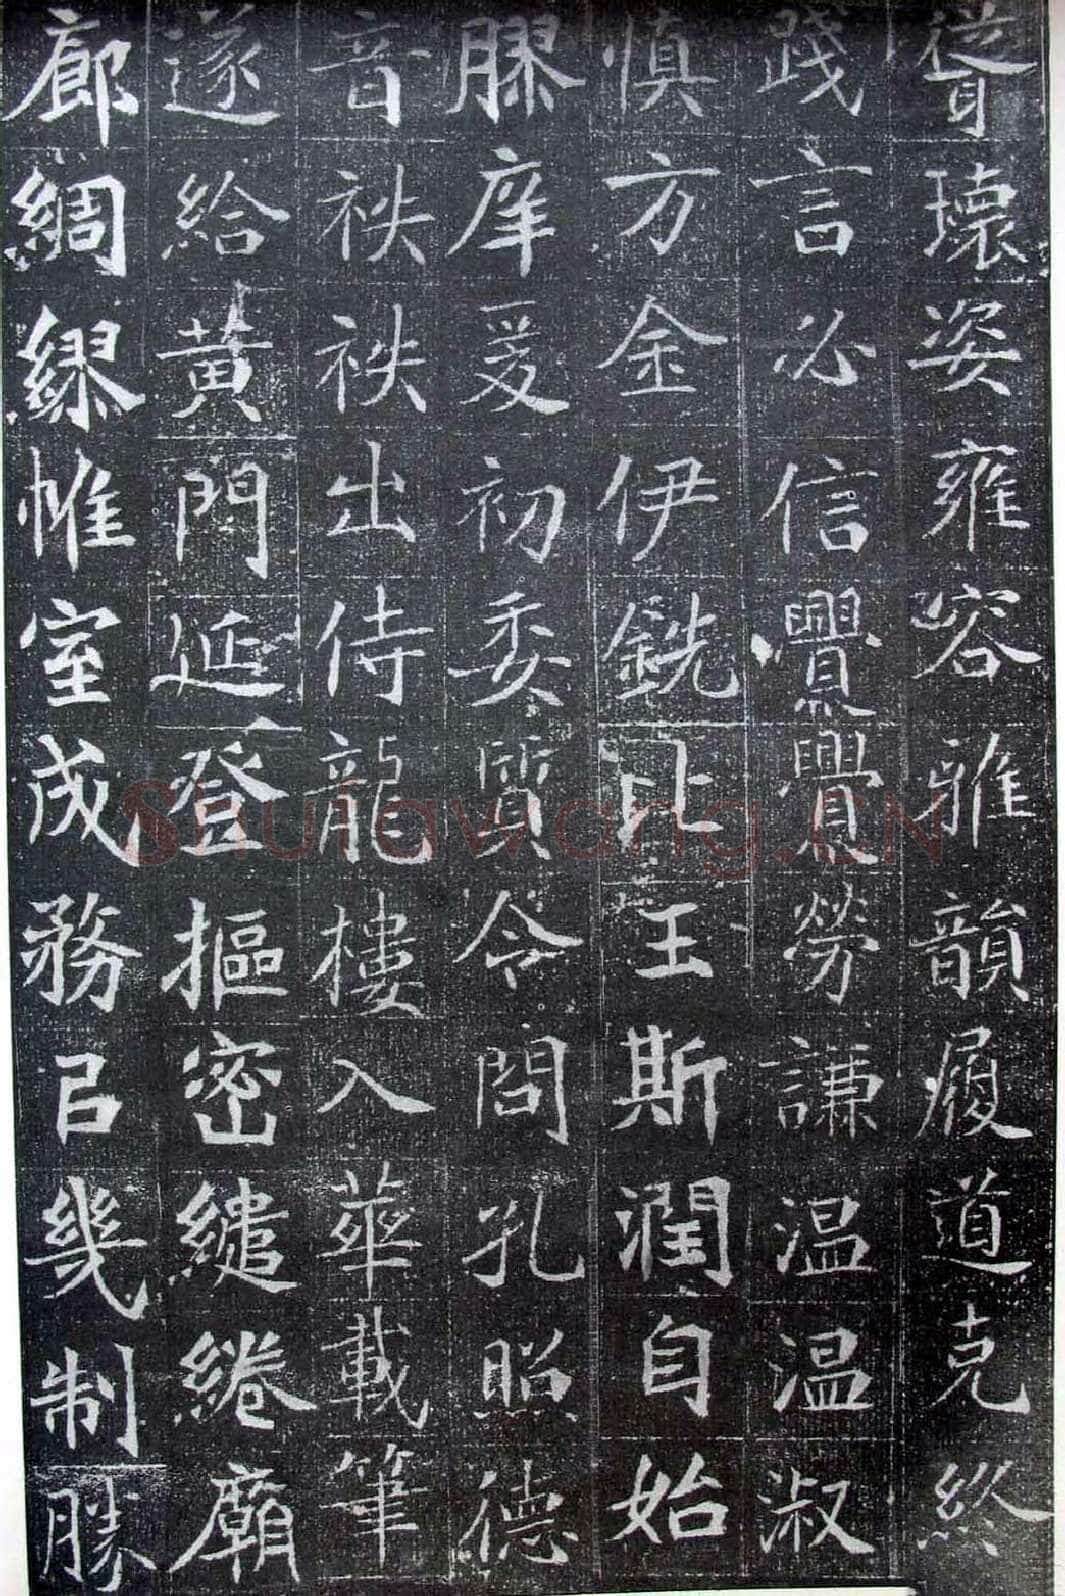 聳瓌姿雍容雅韻履道克終
踐言必信亹亹勞謙温温淑
慎方金伊銑比玉斯潤自始
膠庠爰初委質令問孔昭德
音秩秩出侍龍樓入華載筆
遂給黄門延登樞密繾綣廟
廊綢繆帷室成務呂幾制勝
Shufawang.CN